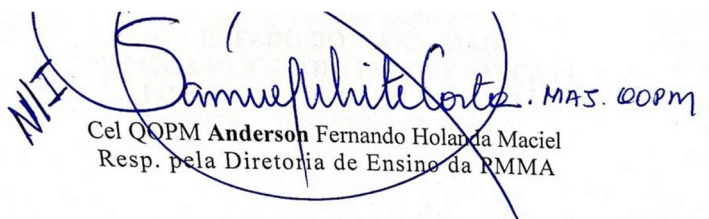 N/I
Samuel White Corta. MAJ. QOPM
Cel QOPM Anderson Fernando Holanda Maciel
Resp. pela Diretoria de Ensino da PMMA